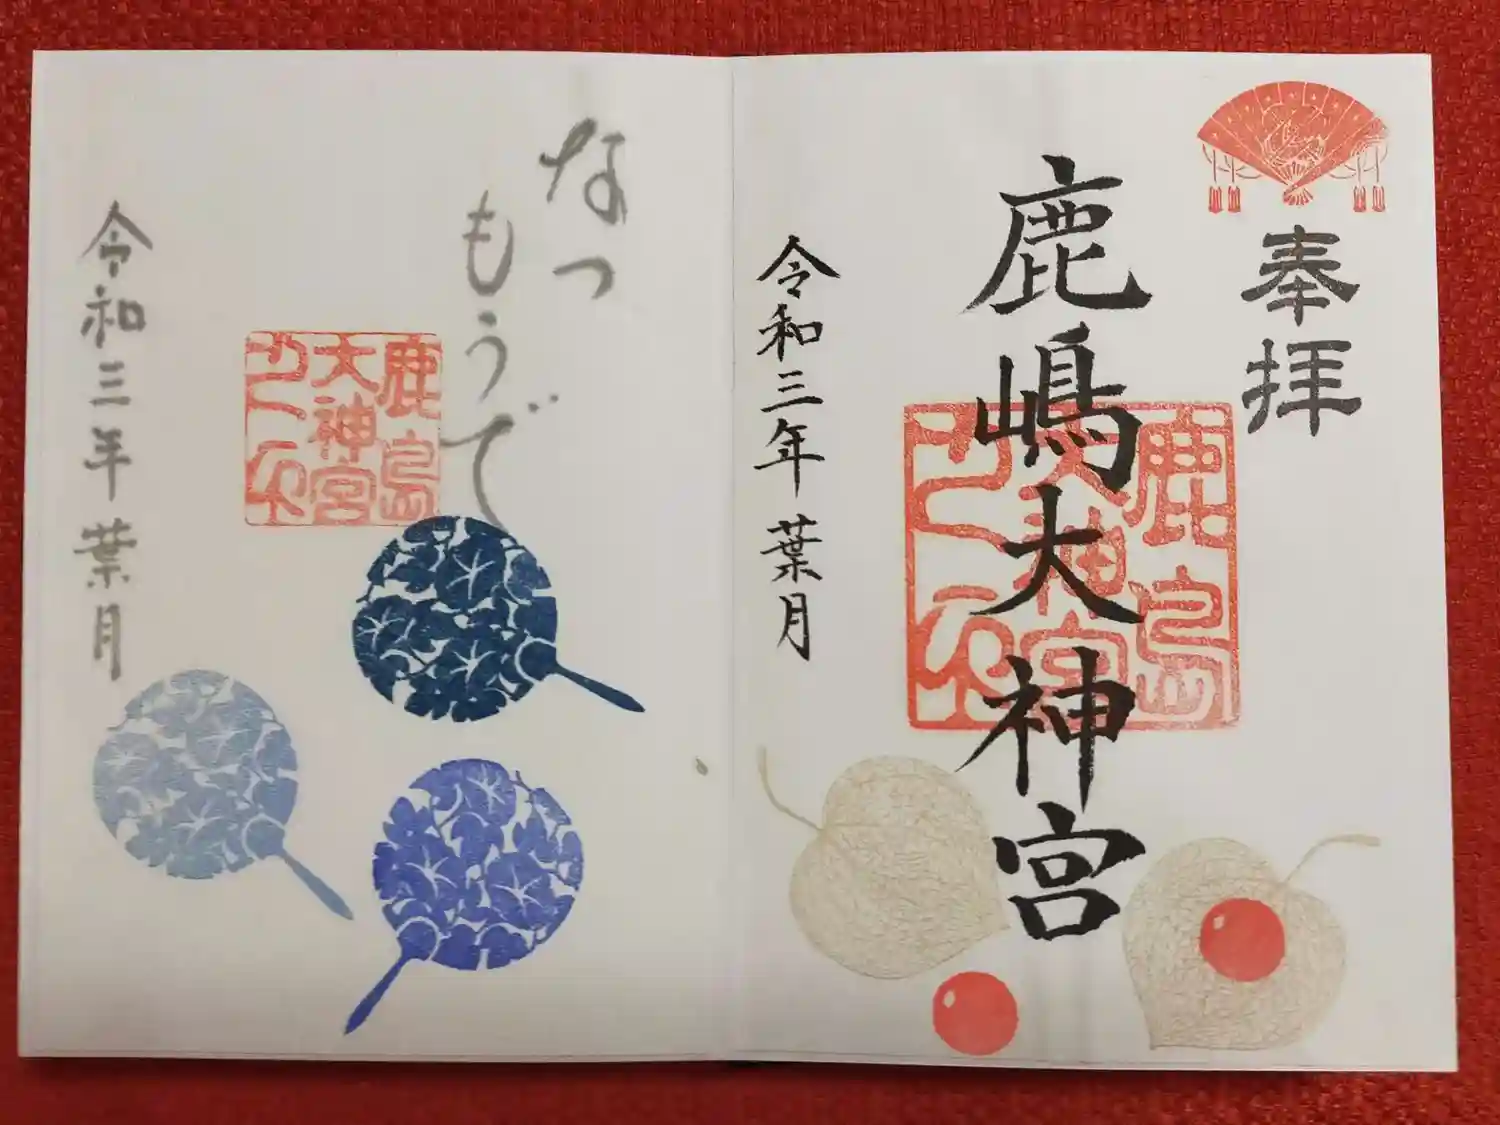 奉拝
鹿嶋大神宮
鹿島
大神宮
令和三年 葉月
なつ
もうで
鹿島
大神宮
令和三年 葉月